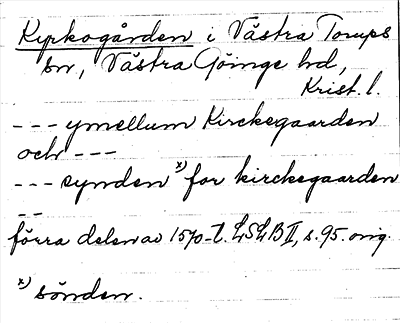 Kyrkogården i Västra Torups
sn, Västra Göinge hd,
Krist. l.
--- ymellum Kirckegaarden
och ---
--- synden x) for kirckegaarden
--
förra delen av 1570-t. LSLB II, s. 95. orig.
x) sönden.